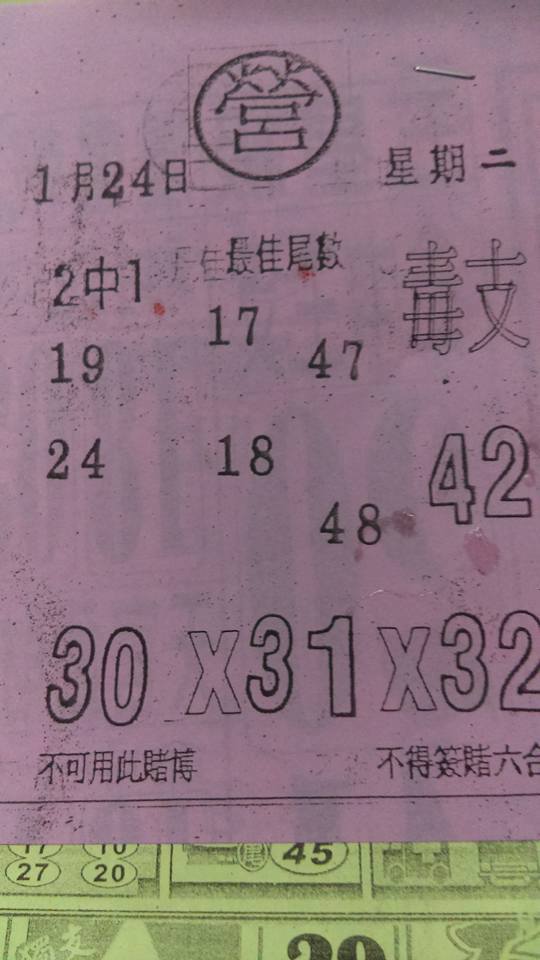 營
1月24日 星期二
2中1 最佳尾數 毒支
17
19 47
24 18 42
48
30 X 31 X 32
不可用此賭博 不得簽賭六合
45
27 20
獨支